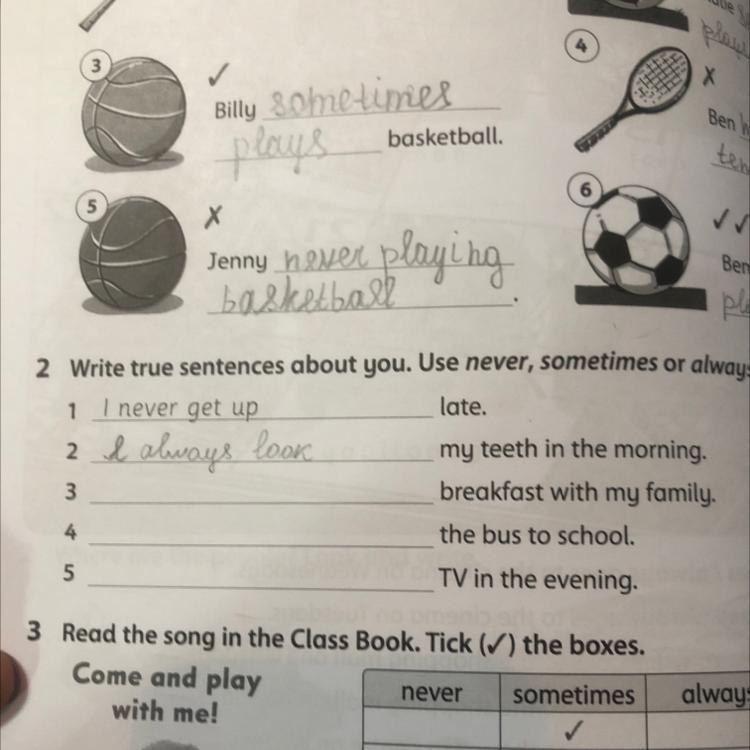 3 ✓
Billy sometimes
plays basketball.
4 ✗
Ben
5 ✗
Jenny never playing
basketball.
6 ✓✓
Ben
2 Write true sentences about you. Use never, sometimes or always
1 I never get up late.
2 I always look my teeth in the morning.
3 breakfast with my family.
4 the bus to school.
5 TV in the evening.
3 Read the song in the Class Book. Tick (✓) the boxes.
Come and play
with me!
never sometimes always
✓